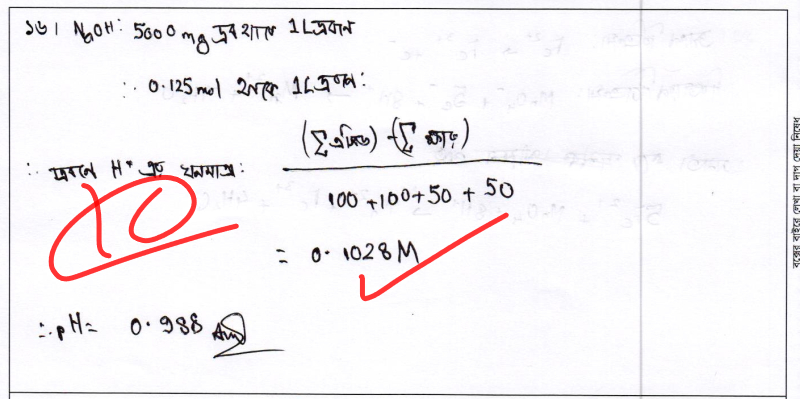 ১৬। NaOH: 5000mg দ্রব থাকে 1L দ্রবণে
∴ 0.125mol থাকে 1L দ্রবণে:
∴ দ্রবণে H⁺ এর ঘনমাত্রা: (∑এসিড) - (∑ক্ষার) / 100 + 100 + 50 + 50
= 0.1028M
10
∴ pH = 0.988 Ans
বক্সের বাইরে লেখা বা দাগ দেয়া নিষেধ